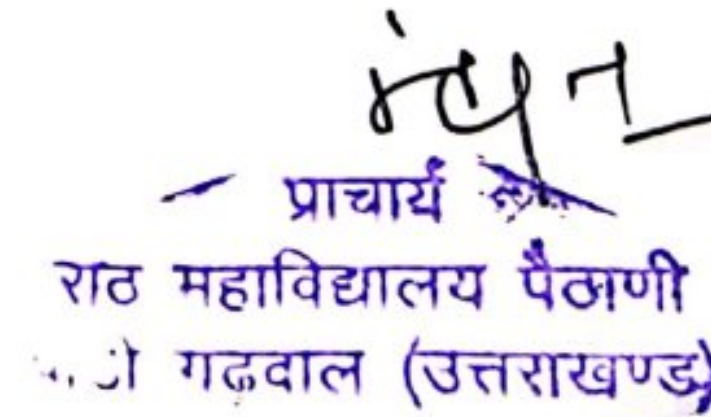 प्राचार्य
राठ महाविद्यालय पैठाणी
गढ़वाल (उत्तराखण्ड)